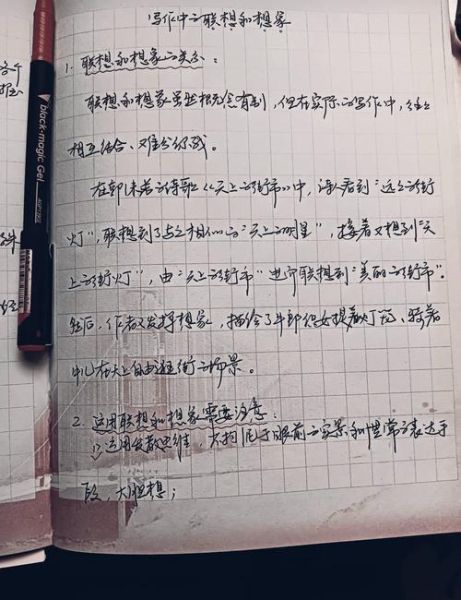 写作中之联想和想象
1. 联想和想象之关系：
联想和想象虽然概念有别，但在实际之写作中，往往
相互结合、难分你我。
在郭沫若之诗歌《天上之街市》中，诗人看到“远之街
灯”，联想到了与之相似之“天上之明星”，接着又想到“天
上之街灯”，由“天上之街市”进而联想到“美丽之街市”。
然后，作者又发挥想象，描绘了牛郎织女提着灯笼、骑着
牛儿在天上自由逛街之场景。
2. 运用联想和想象需要注意：
1) 运用发散思维，不拘泥于眼前之实景和惯常之表达手
段，大胆想；
black-magic Gel
各个